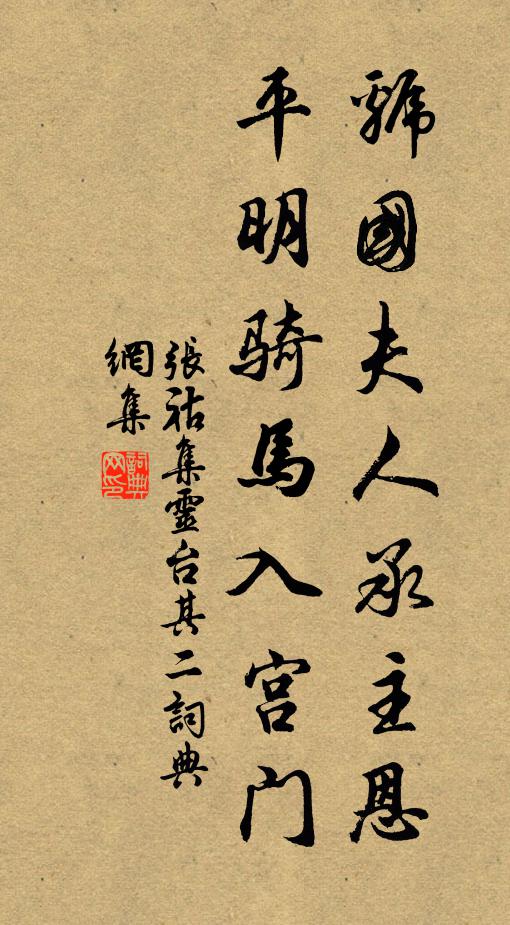 虢國夫人承主恩
平明騎馬入宮門
張祜集靈台其二詞典
網集
詞典网印